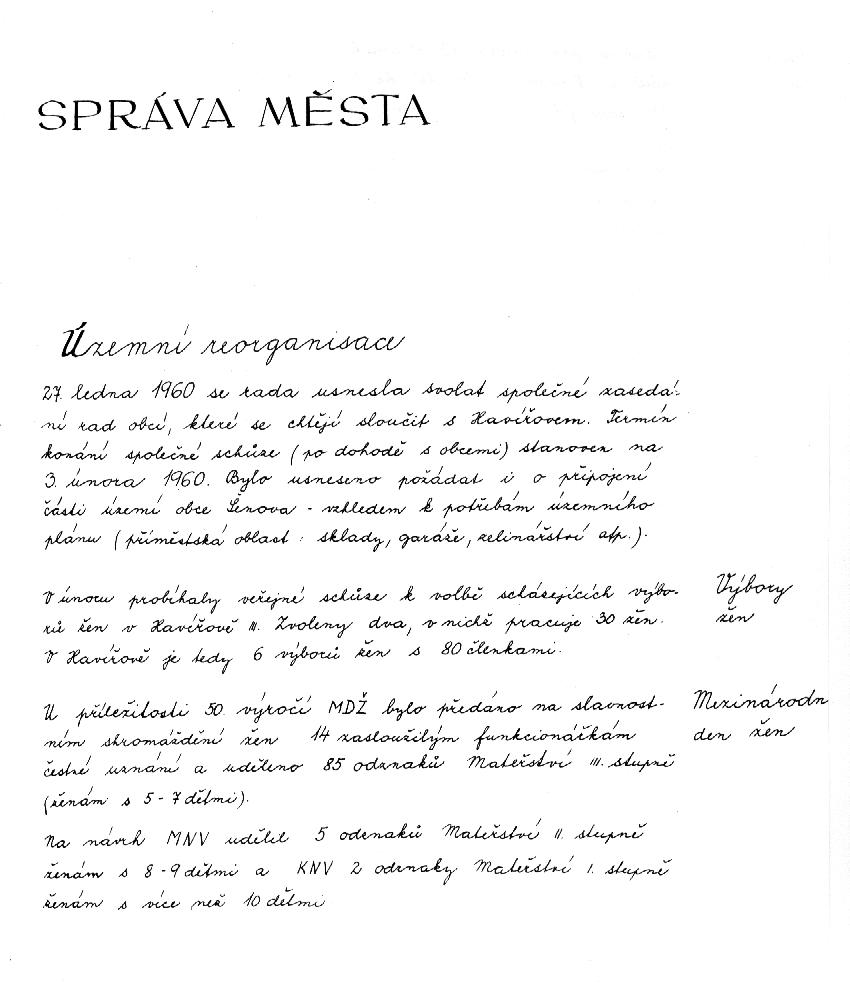 SPRÁVA MĚSTA
Územní reorganisace
27. ledna 1960 se rada usnesla svolat společné zasedá-
ní rad obcí, které se chtějí sloučit s Havířovem. Termín
konání společné schůze (po dohodě s obcemi) stanoven na
3. února 1960. Bylo usneseno požádat i o připojení
části území obce Šenova - vzhledem k potřebám územního
plánu (příměstská oblast: sklady, garáže, zelinářství atp.).
V únoru probíhaly veřejné schůze k volbě scházejících výbo-
rů žen v Havířově III. Zvoleny dva, v nichž pracuje 30 žen.
V Havířově je tedy 6 výborů žen s 80 členkami.
Výbory
žen
U příležitosti 50. výročí MDŽ bylo předáno na slavnost-
ním shromáždění žen 14 zasloužilým funkcionářkám
čestné uznání a uděleno 85 odznaků Mateřství III. stupně
(ženám s 5-7 dětmi).
Mezinárodn
den žen
Na návrh MNV udělil 5 odznaků Mateřství II. stupně
ženám s 8-9 dětmi a KNV 2 odznaky Mateřství I. stupně
ženám s více než 10 dětmi